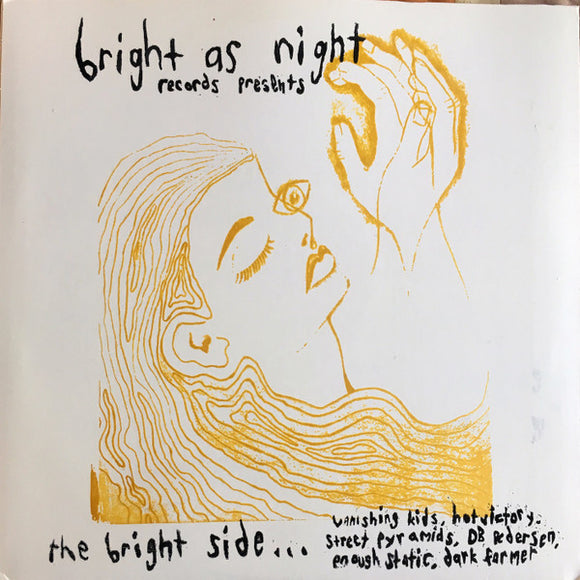 bright as night
records presents
the bright side...
vanishing kids, hot victory,
street pyramids, DB Pedersen,
enough static, dark farmer